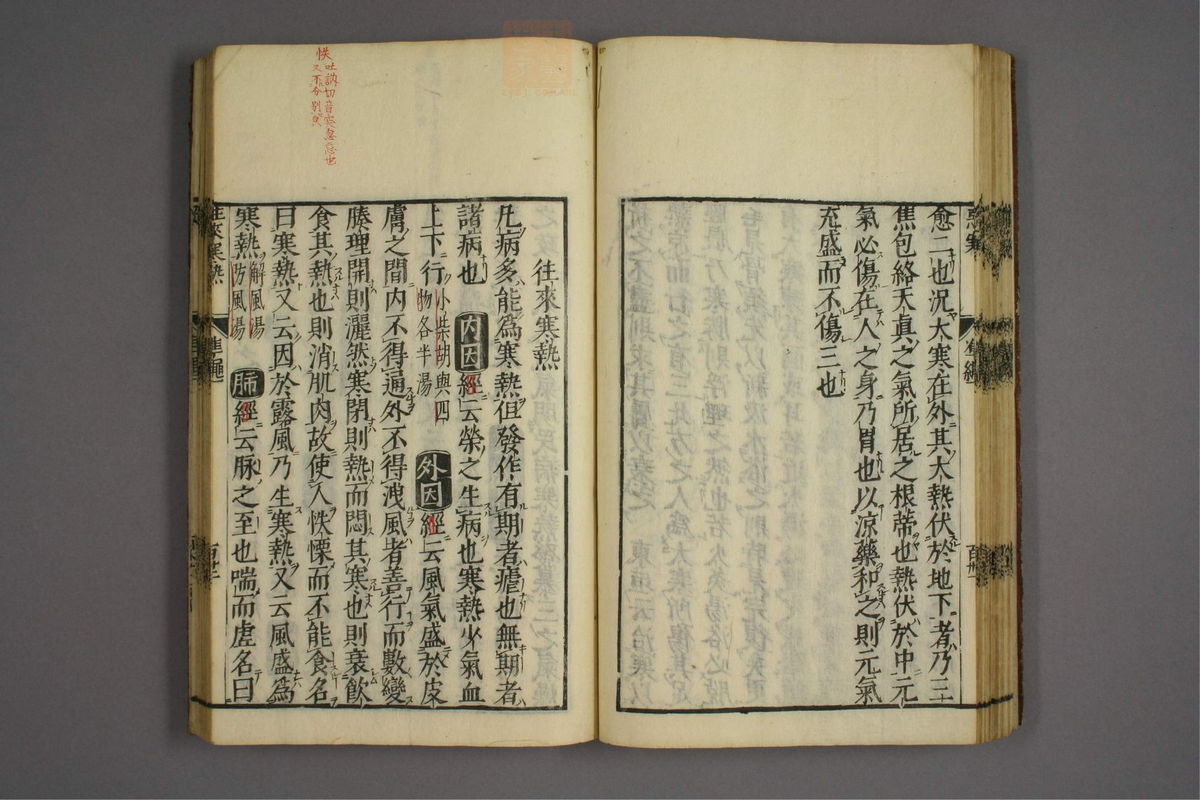 愈二也況大寒在外其大熱伏於地下者乃三
焦包絡天真之氣所居之根蒂也熱伏於中元
氣必傷在人之身乃胃也以涼藥和之則元氣
充盛而不傷三也
往來寒熱
凡病多能為寒熱但發作有期者瘧也無期者
諸病也
小柴胡與四
物各半湯
內因經云榮之生病也寒熱少氣血
上下行
外因經云風氣盛於皮
膚之間內不得通外不得洩風者善行而數變
腠理開則灑然寒閉則熱而悶其寒也則衰飲
食其熱也則消肌肉故使人怢慄而不能食名
曰寒熱又云因於露風乃生寒熱又云風盛為
寒熱
解風湯
防風湯
肺經云脉之至也喘而虛名曰
往來寒熱
怢吐訥切音突忽忘也
又不分別皃